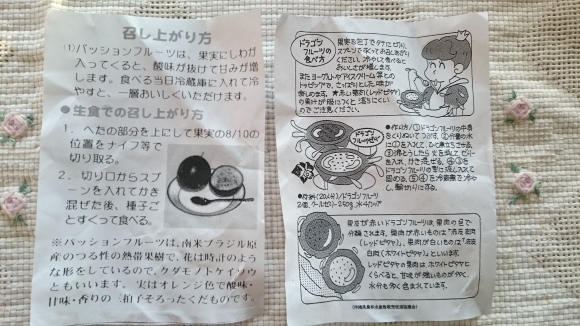 召し上がり方
(1)パッションフルーツは、果実にしわが
入ってくると、酸味が抜けて甘みが増
します。食べる当日冷蔵庫に入れて冷
やすと、一層おいしくいただけます。
●生食での召し上がり方
1. へたの部分を上にして果実の8/10の
位置をナイフ等で
切り取る。
2. 切り口からスプ
ーンを入れてかき
混ぜた後、種子ご
とすくって食べる。
※パッションフルーツは、南米ブラジル原
産のつる性の熱帯果樹で、花は時計のよう
な形をしているので、クダモノトケイソウ
ともいいます。 実はオレンジ色で酸味・
甘味・香りの三拍子そろったくだものです。
ドラゴン
フルーツの
食べ方
果実を包丁でタテに切り、
スプーンですくってお召しあがり
ください。冷やして食べると
おいしさが増します。
またヨーグルトやアイスクリーム等との
トッピングで、さっぱりとした味が
楽しめます。★赤い果肉(レッドピタヤ)
の果汁が服につくと落ちにくい
のでご注意ください。
ドラゴン
フルーツゼリー
●作り方/①ドラゴンフルーツの中身
をくりぬいてつぶす。②分量の水
に①を入れて、ひと煮立ちさせる。
●材料(20人分)/ドラゴンフルーツ
2個、クールゼリー250g、水
果皮が赤いドラゴンフルーツは、果肉の色で
分類されます。果肉が赤いものは「赤皮赤肉
(レッドピタヤ)」、果肉が白いものは「赤皮
白肉(ホワイトピタヤ)」といいます。
レッドピタヤの果肉はホワイトピタヤと
くらべると、甘味が強いものが多く、
水分も多く含まれています。